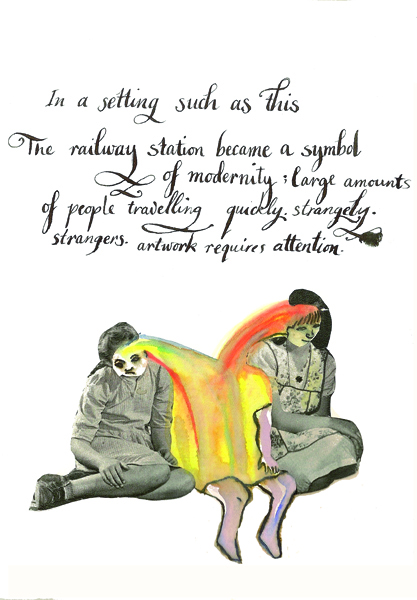 In a setting such as this
The railway station became a symbol
of modernity; large amounts
of people travelling quickly. strangely.
strangers. artwork requires attention.